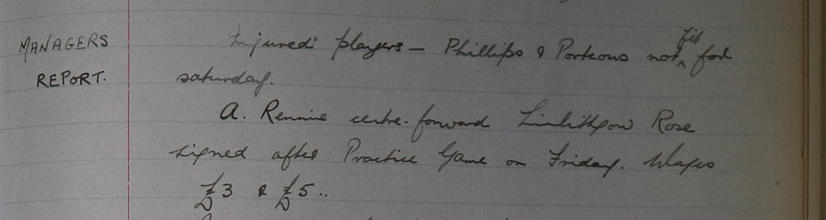 MANAGERS
REPORT.
Injured players – Phillips & Porteous not ^fit for
saturday.
A. Rennie centre. forward Linlithgow Rose
signed after Practice Game on Friday. Wages
£3 & £5..